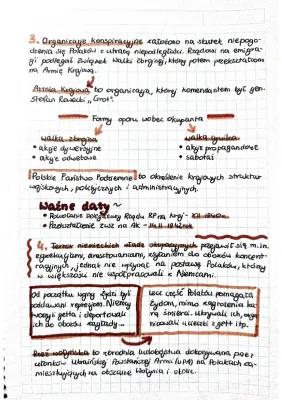 3. Organizacje konspiracyjne założono na skutek niepogo-
dzenia się Polaków z utratą niepodległości. Rządowi na emigra-
cji podlegał Związek Walki Zbrojnej, który potem przekształcono
na Armię Krajową.
Armia Krajowa to organizacja, której komendantem był gen.
Stefan Rowecki „Grot".
Formy oporu wobec okupanta
walka zbrojna
walka cywilna
• akcje dywersyjne
• akcje propagandowe
• akcje odwetowe
• sabotaż
Polskie Państwo Podziemne to określenie krajowych struktur
wojskowych, politycznych i administracyjnych.
Ważne daty ~
• Powołanie Delegatury Rządu RP na Kraj -
• Przekształcenie ZWZ na AK - 14.II.1942rok
4. Terror niemieckich władz okupacyjnych przejawiał się m.in.
egzekucjami, aresztowaniami, zsyłaniem do obozów koncent-
racyjnych, jednak nie wpłynął na postawę Polaków, którzy
w większości nie współpracowali z Niemcami.
Od początku wojny Żydzi byli
poddawani represjom. Niemcy
tworzyli getta i deportowali
ich do obozów zagłady...
lecz część Polaków pomagała
Żydom, mimo zagrożenia ka-
rą śmierci. Ukrywali ich, orga-
nizowali ucieczki z gett itp.
Rzeź wołyńska to zbrodnia ludobójstwa dokonywana przez
członków Ukraińskiej Powstańczej Armii (UPA) na Polakach za-
mieszkujących na obszarze Wołynia i okolic.